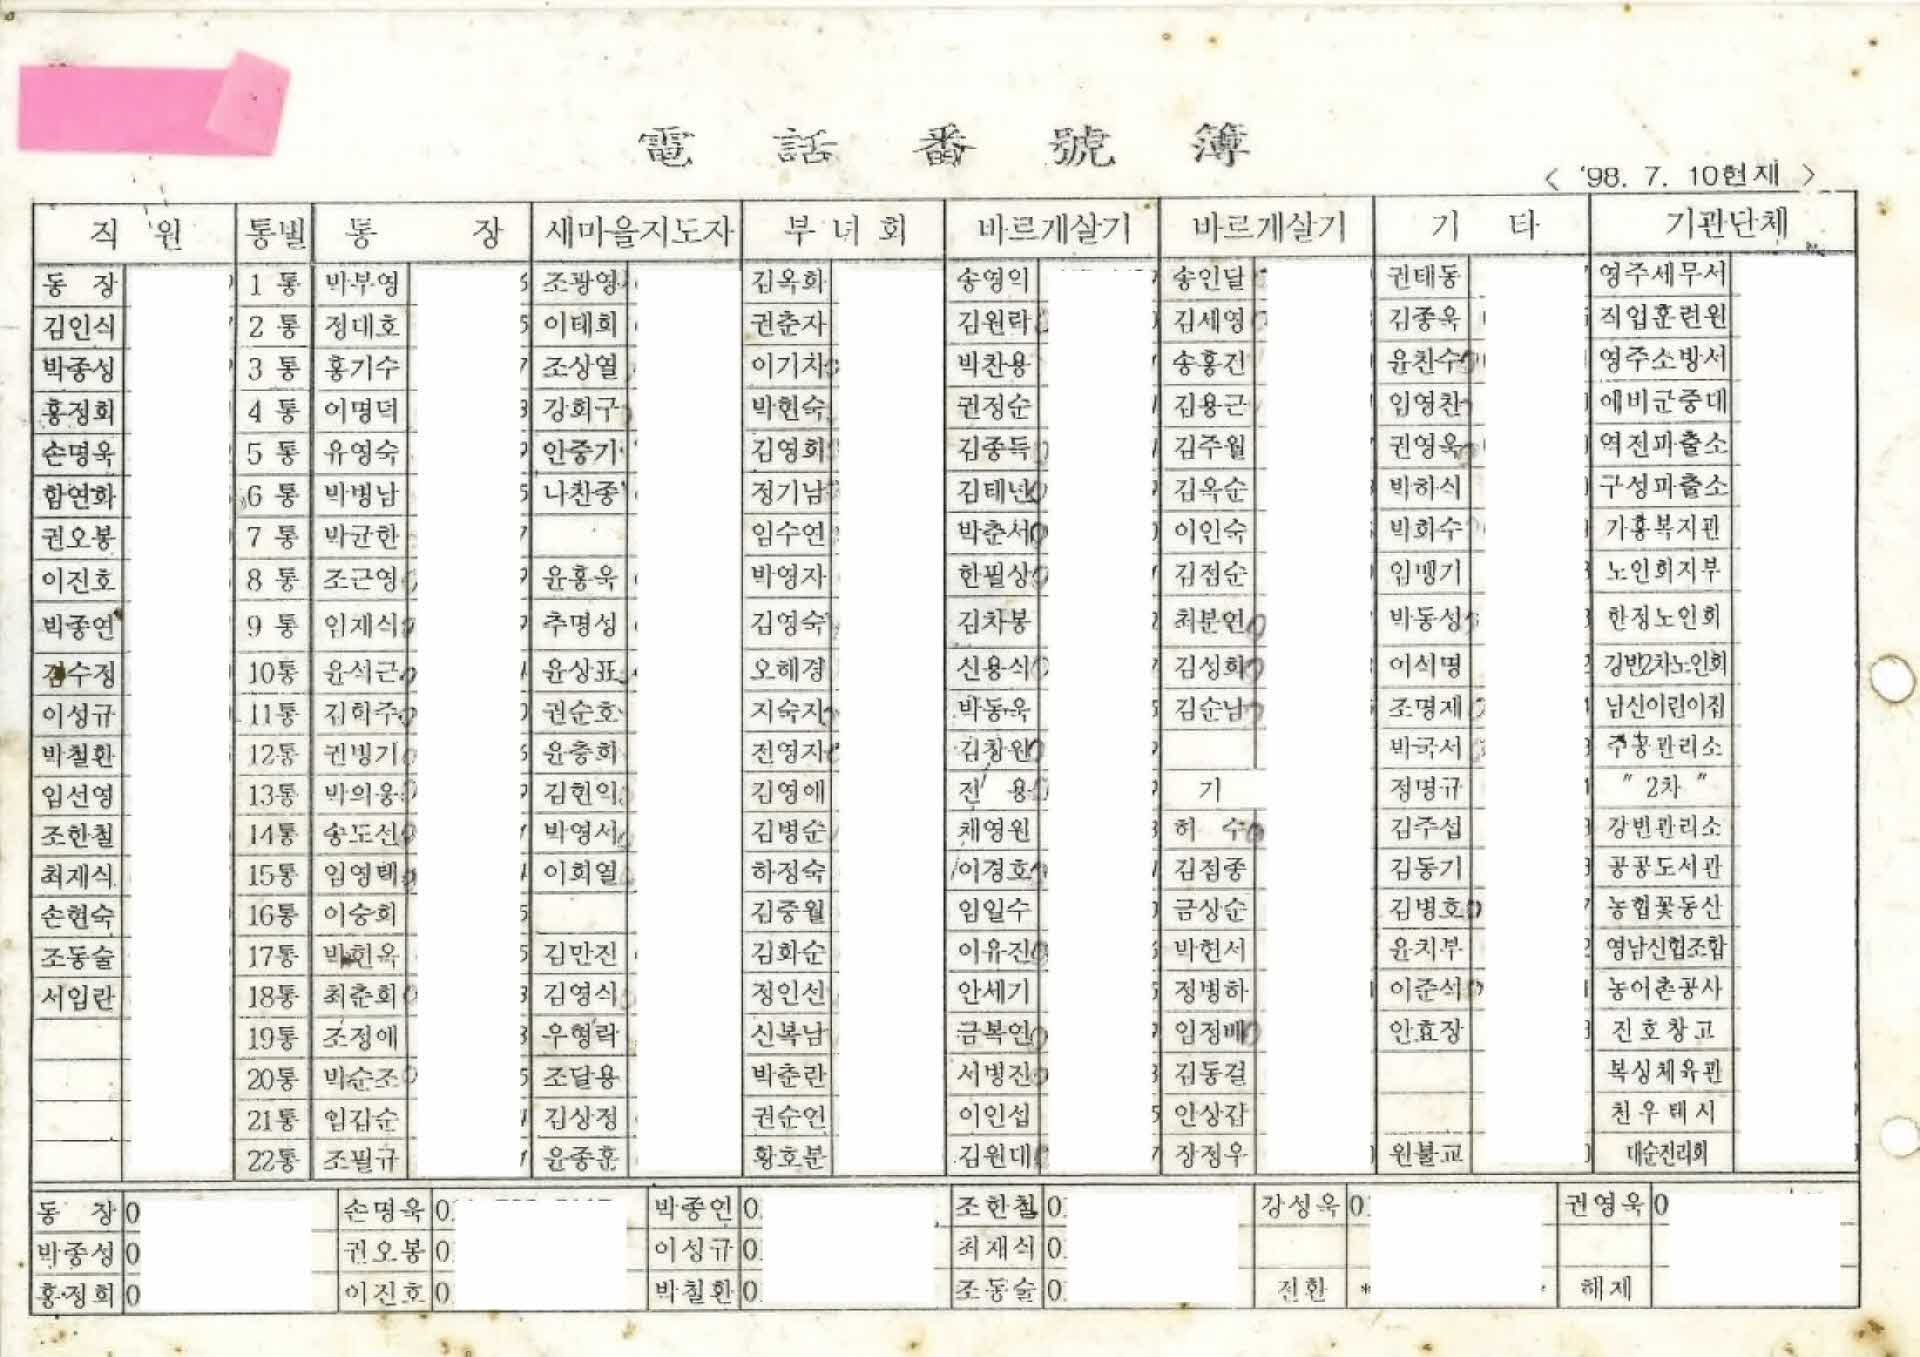 電 話 番 號 簿
< '98. 7. 10현재 >
직 원 통별 통 장 새마을지도자 부 녀 회 바르게살기 바르게살기 기 타 기관단체
동 장 1 통 박부영 조광영 김옥화 송영익 송인달 권태동 영주세무서
김인식 2 통 정대호 이태희 권춘자 김원락 김세영 김종욱 직업훈련원
박종성 3 통 홍기수 조상열 이기차 박찬용 송홍진 윤찬수 영주소방서
홍정희 4 통 이명덕 강회구 박현숙 권정순 김용근 임영찬 예비군중대
손명욱 5 통 유영숙 안중기 김영희 김종득 김주월 권영욱 역전파출소
함연화 6 통 박병남 나찬종 정기남 김태년 김옥순 박하식 구성파출소
권오봉 7 통 박균한 임수연 박춘서 이인숙 박희수 가흥복지관
이진호 8 통 조근영 윤홍욱 박영자 한필상 김점순 임맹기 노인회지부
박종연 9 통 임재식 추명성 김영숙 김차봉 최분연 박동성 한정노인회
김수정 10통 윤석근 윤상표 오혜경 신용식 김성희 이석명 강변2차노인회
이성규 11통 김학주 권순호 지숙자 박동욱 김순남 조명제 남신어린이집
박칠환 12통 권병기 윤충희 전영자 김창원 박국서 주공관리소
임선영 13통 박의웅 김헌익 김영애 전 용 기 정명규 " 2차 "
조한철 14통 송도선 박영서 김병순 채영원 허 수 김주섭 강변관리소
최재식 15통 임영택 이희열 하정숙 이경호 김점종 김동기 공공도서관
손현숙 16통 이숭희 김중월 임일수 금상순 김병호 농협꽃동산
조동술 17통 박헌옥 김만진 김화순 이유진 박헌서 윤치부 영남신협조합
서입란 18통 최춘희 김영식 정인선 안세기 정병하 이준석 농어촌공사
19통 조정애 우형락 신복남 금복연 임정배 안효장 진호창고
20통 박순조 조달용 박춘란 서병진 김동걸 복싱체육관
21통 임갑순 김상정 권순연 이인섭 안상갑 천우택시
22통 조필규 윤종훈 황호분 김원대 장정우 원불교 대순진리회
동 장 0 손명욱 0 박종연 0 조한철 0 강성욱 0 권영욱 0
박종성 0 권오봉 0 이성규 0 최재식 0
홍정희 0 이진호 0 박칠환 0 조동술 0 전환 * 해제